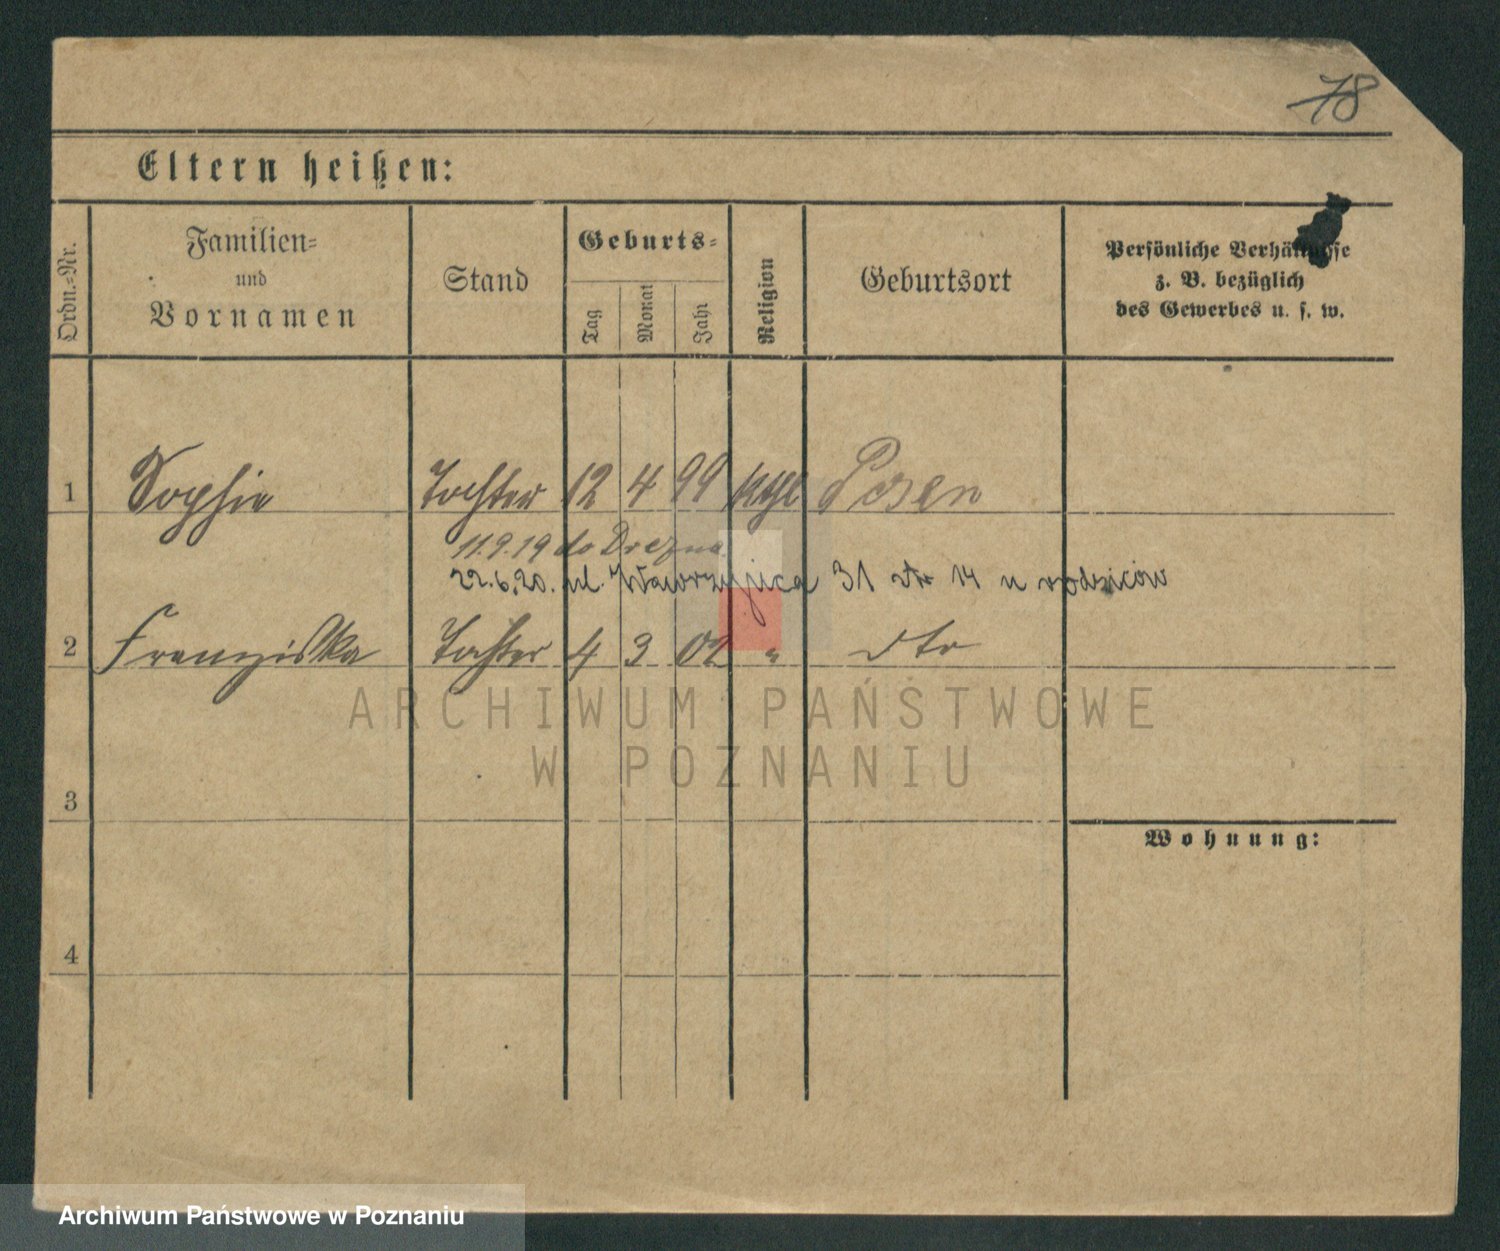 78
Eltern heißen:
Ordn.-Nr.
Familien-
und
Vornamen
Stand
Geburts-
Tag
Monat
Jahr
Religion
Geburtsort
Persönliche Verhältnisse
z. B. bezüglich
des Gewerbes u. s. w.
1 Sophie Tochter 12 4 99 kthl Posen
11.9.19 do Drezna
22.6.20. ul. Wawrzyńca 31 dtr 14 u rodziców
2 Franziska Tochter 4 3 02 " dto
ARCHIWUM PAŃSTWOWE
W POZNANIU
3
Wohnung:
4
Archiwum Państwowe w Poznaniu